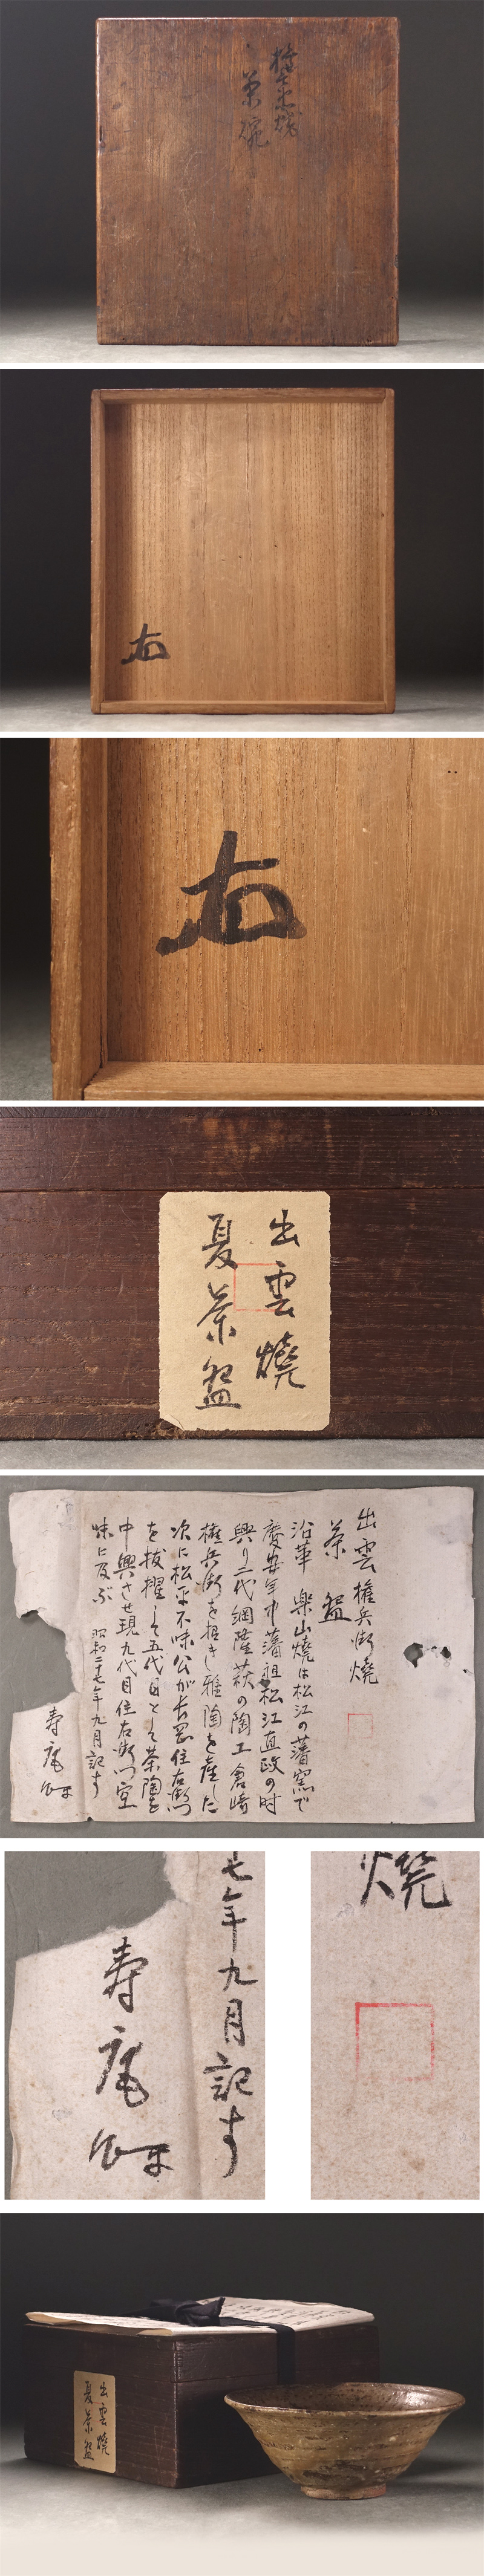 権兵衛焼
茶碗
右
右
出雲燒
夏茶盌
出雲権兵衛燒
茶盌
沿革 楽山焼は松江の藩窯で
慶安年中藩祖松江直政の時
興り二代綱隆萩の陶工倉崎
権兵衛を招きし雅陶を産した
次に松平不昧公が長岡住右衛門
を抜擢して五代目として茶陶を
中興させ現九代目住右衛門空
味に及ぶ 昭和二十七年九月記す
寿庵
七年九月記す
寿庵
燒
出雲燒
夏茶盌